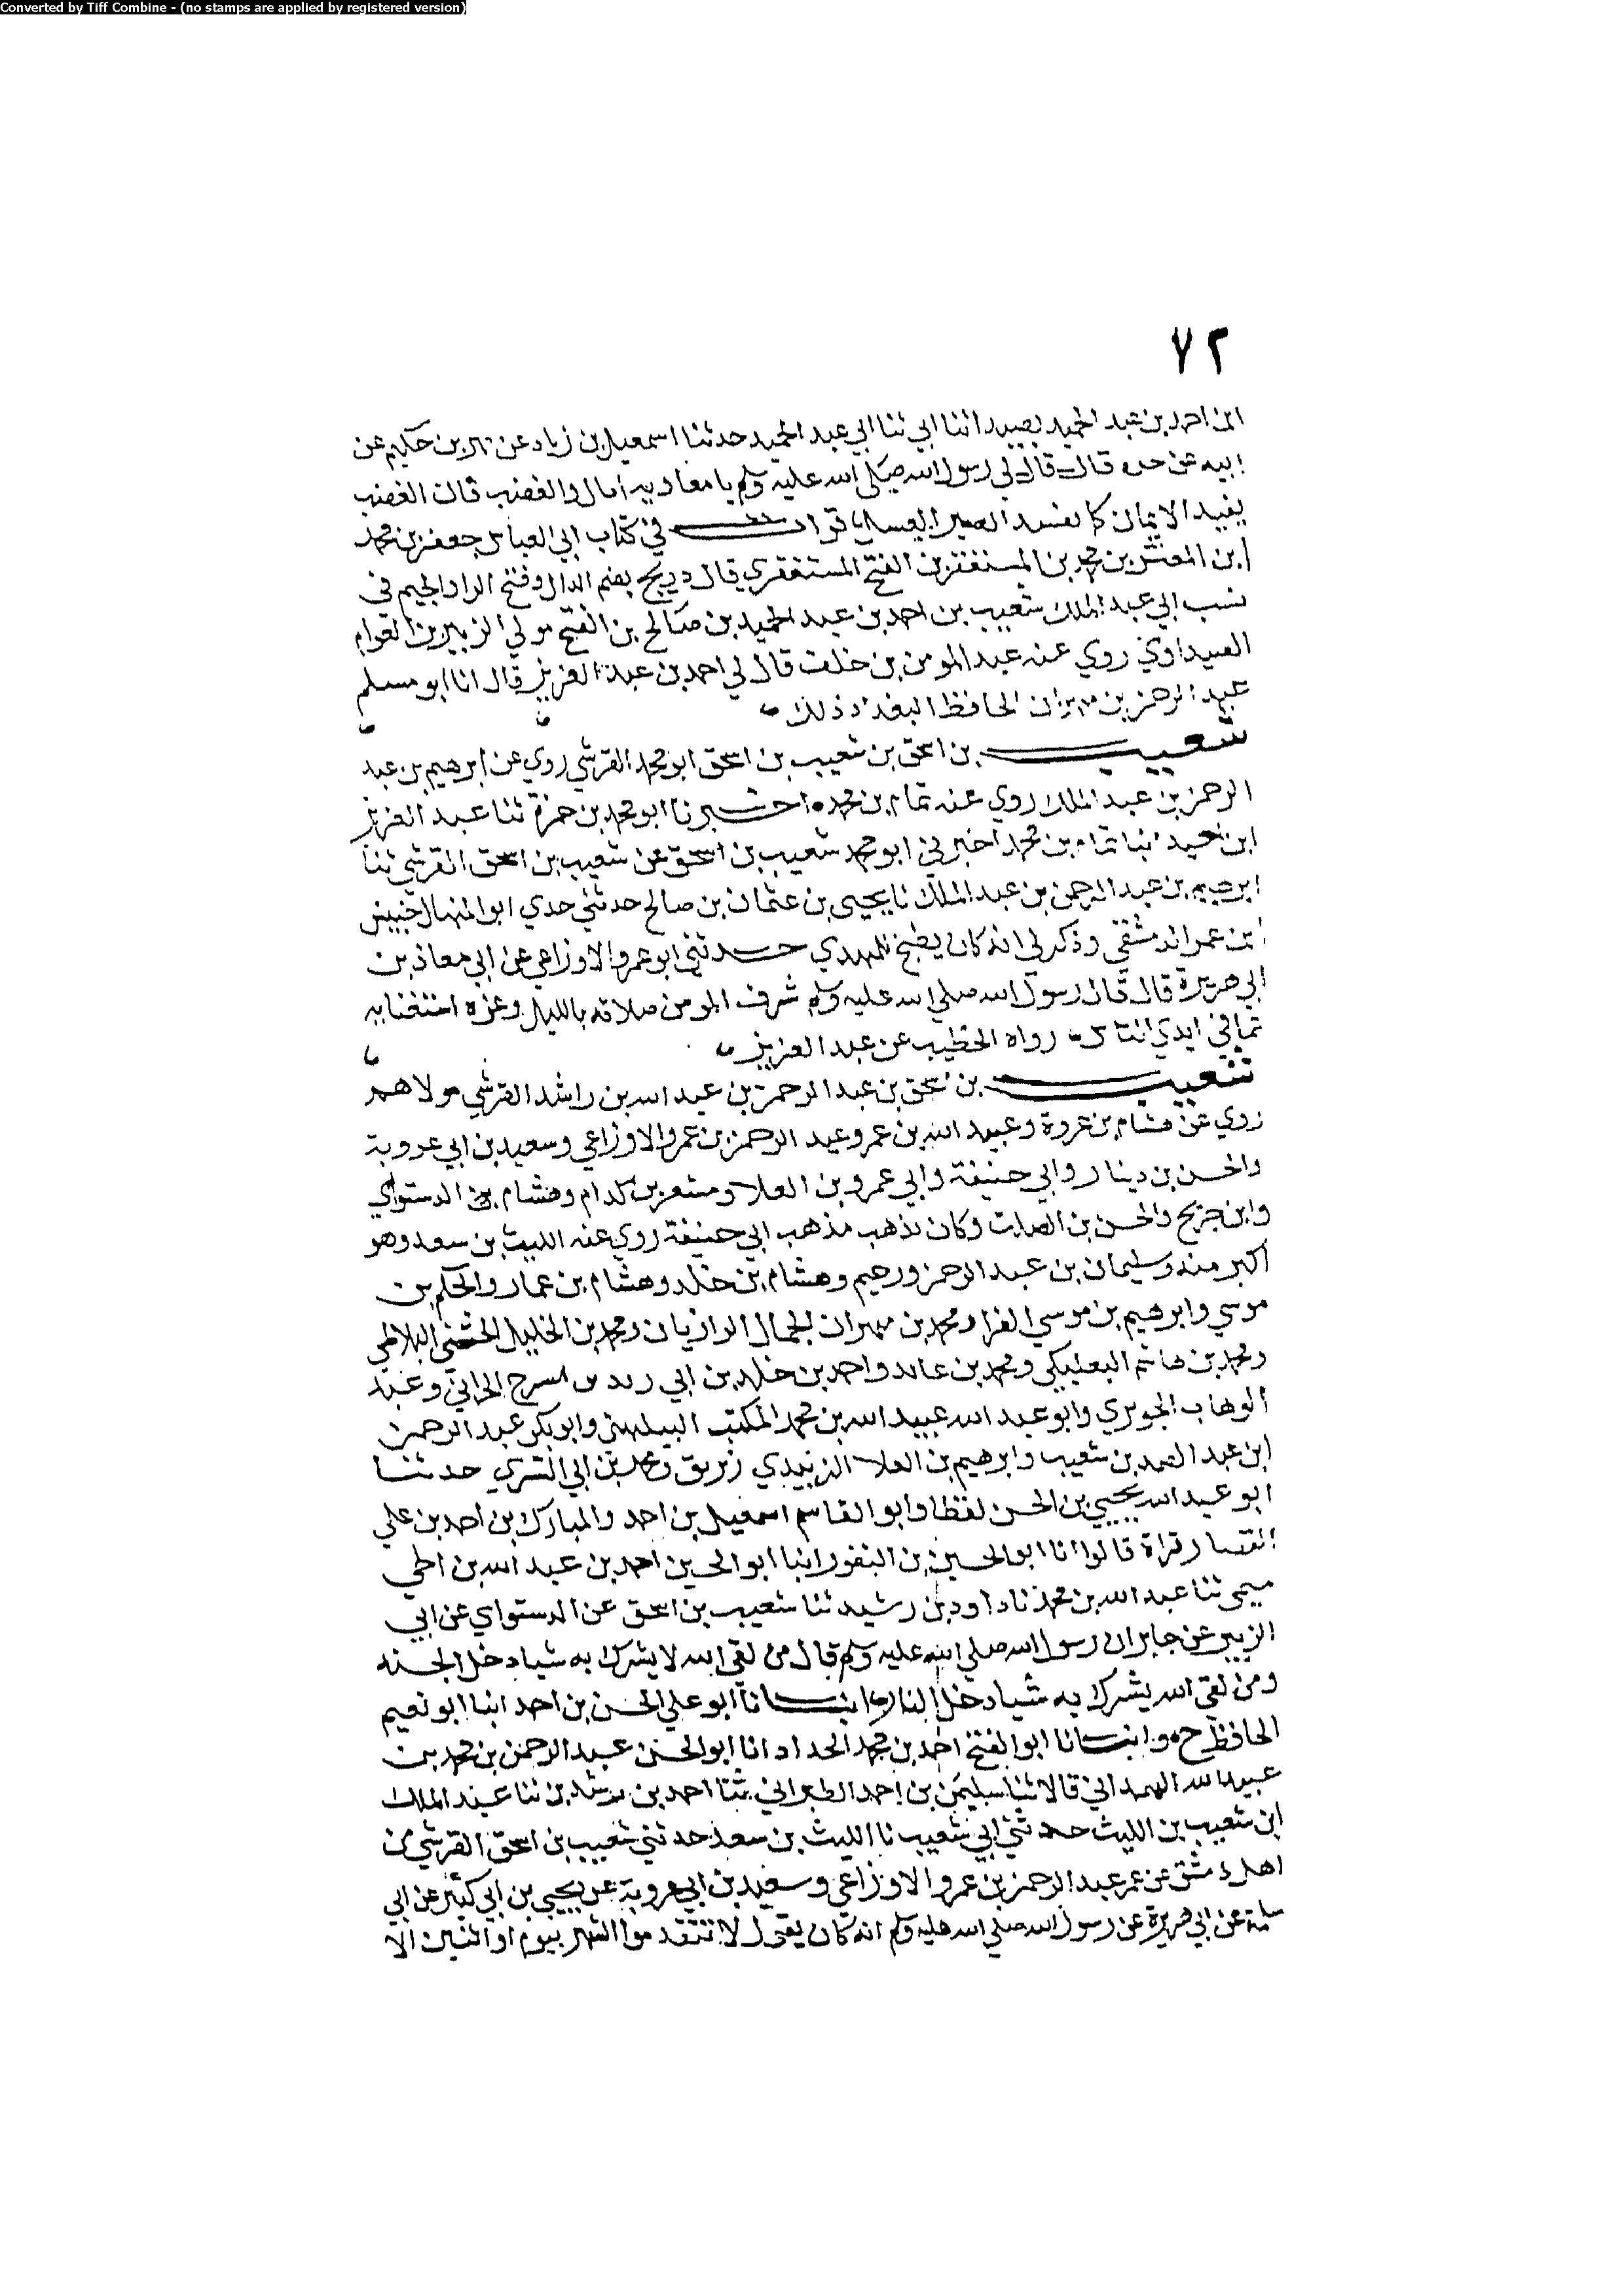 Converted by Tiff Combine - (no stamps are applied by registered version)
٧٢
ابن احمد بن عبد الحميد بصيدا ثنا ابي ثنا ابي عبد الحميد حدثنا اسمعيل بن زياد عن بهز بن حكيم عن
ابيه عن جده قال قال لي رسول الله صلى الله عليه وسلم يا معاوية اياك والغضب فان الغضب
يفسد الايمان كما يفسد الصبر العسل قرات في كتاب ابي العباس جعفر بن محمد
ابن المعتز بن محمد بن المستغفر بن الفتح المستغفري قال دريج بضم الدال وفتح الرا والجيم في
نسب ابي عبد الملك شعيب بن احمد بن عبد الحميد بن صالح بن الفتح مولي الزبير بن العوام
الصيداوي روي عنه عبد المومن بن خلف قال لي احمد بن عبد العزيز قال انا ابو مسلم
عبد الرحمن بن مهران الحافظ البغداد ذلك
شعيب بن اسحق بن شعيب بن اسحق ابو محمد القرشي روي عن ابرهيم بن عبد
الرحمن بن عبد الملك روي عنه تمام بن محمد اخبرنا ابو محمد بن حمزة ثنا عبد العزيز
ابن احمد انبا تمام بن محمد اخبرني ابو محمد شعيب بن اسحق عن شعيب بن اسحق القرشي ثنا
ابرهيم بن عبد الرحمن بن عبد الملك نا يحيى بن عثمان بن صالح حدثني جدي ابو المنهال حبيش
ابن عمر الدمشقي وذكر لي انه كان يطبخ للمهدي حدثني ابو عمرو الاوزاعي عن ابي معاذ بن
ابي هريرة قال قال رسول الله صلي الله عليه وسلم شرف المومن صلاته بالليل وعزه استغنايه
عما في ايدي الناس رواه الخطيب عن عبد العزيز
شعيب بن اسحق بن عبد الرحمن بن عبد الله بن راشد القرشي مولاهم
روي عن هشام بن عروة وعبيد الله بن عمر وعبد الرحمن بن عمرو الاوزاعي وسعيد بن ابي عروبة
والحسن بن دينار وابي حنيفة وابي عمرو بن العلا ومسعر بن كدام وهشام بن الدستواي
وابن جريج والحسن بن الصلت وكان يذهب مذهب ابي حنيفة روي عنه الليث بن سعد وهو
اكبر منه وسليمان بن عبد الرحمن ورحيم وهشام بن خلد وهشام بن عمار والحكم بن
موسي وابرهيم بن موسي الفرا ومحمد بن مهران الجمال الرازيان ومحمد بن الخليل الخشني البلاطي
ومحمد بن هاشم البعلبكي ومحمد بن عايد واحمد بن خلد بن ابي المسرح الحراني وعبد
الوهاب الجوبري وابو عبد الله عبيد الله بن محمد المكتب وابو بكر عبد الرحمن
ابن عبد الصمد بن شعيب وابرهيم بن العلا الزبيدي زبريق ومحمد بن ابي السري حدثنا
ابو عبد الله يحيي بن الحسن لفظا وابو القاسم اسمعيل بن احمد والمبارك بن احمد بن علي
القصار قراة قالوا انا ابو الحسين بن النقور انبا ابو الحسين احمد بن عبد الله بن اخي
ميمي ثنا عبد الله بن محمد نا داود بن رشيد ثنا شعيب بن اسحق عن الدستواي عن ابي
الزبير عن جابر ان رسول الله صلي الله عليه وسلم قال من لقي الله لا يشرك به شيا دخل الجنه
ومن لقي الله يشرك به شيا دخل النار انبانا ابو علي الحسن بن احمد انبا ابو نعيم
الحافظ ح وانبانا ابو الفتح احمد بن محمد الحداد انا ابو الحسن عبد الرحمن بن محمد بن
عبيد الله الهمداني قالا ثنا سليمن بن احمد الطبراني ثنا احمد بن رشدين ثنا عبد الملك
ابن شعيب بن الليث حدثني ابي شعيب نا الليث بن سعد حدثني شعيب بن اسحق القرشي من
اهل دمشق عن عمر عبد الرحمن بن عمرو الاوزاعي وسعيد بن ابي عروبة عن يحيي بن ابي كثير عن ابي
سلمة عن ابي هريرة عن رسول الله صلي الله عليه وسلم انه كان يقول لا تتقدموا الشهر بيوم او اثنين الا